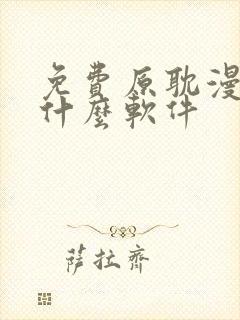 免費原耽漫
什麼軟件
薩拉齊